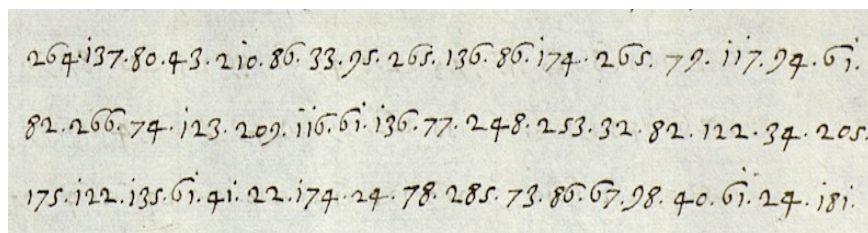 264.137.80.43.210.86.33.95.265.136.86.174.265.79.117.94.61.
82.266.74.123.209.116.61.136.77.248.253.32.82.122.34.205.
175.122.135.61.41.22.174.24.78.285.73.86.67.98.40.61.24.181.